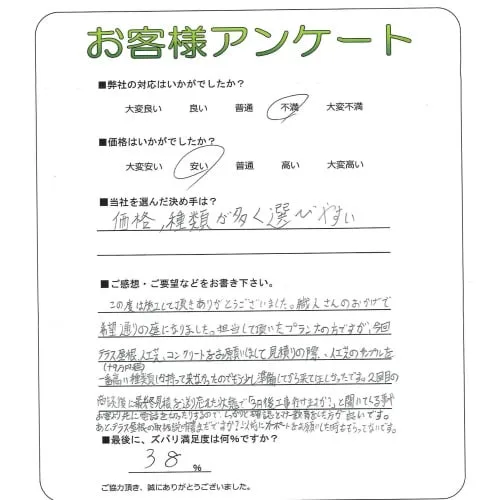 お客様アンケート
■弊社の対応はいかがでしたか?
大変良い 良い 普通 不満 大変不満
■価格はいかがでしたか?
大変安い 安い 普通 高い 大変高い
■当社を選んだ決め手は?
価格,種類が多く選びやすい
■ご感想・ご要望などをお書き下さい。
この度は施工して頂きありがとうございました。職人さんのおかげで
希望通りの庭になりました。担当して頂いたプランナーの方ですが、今回
テラス屋根、人工芝、コンクリートをお願いして見積りの際、人工芝のサンプルを
(+9万円程)
一番高い種類しか持って来なかったのでもう少し準備してから来てほしかったです。2回目の
商談後に最終見積を送り忘れた状態で「3月後工事有けますか?」と聞いてくる事や
確認とマナー教育をした方が良いです。
あとテラス屋根の取扱説明書まだですか?以前にカーポートをお願いした時ももらってないです。
■最後に、ズバリ満足度は何%ですか?
38 %
ご協力頂き、誠にありがとうございました。